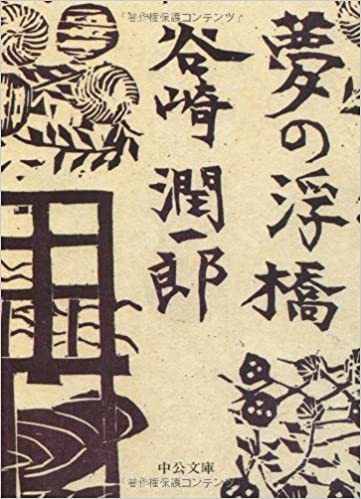 『著作権保護コンテンツ』
夢の浮橋
谷崎潤一郎
中公文庫
『著作権保護コンテンツ』